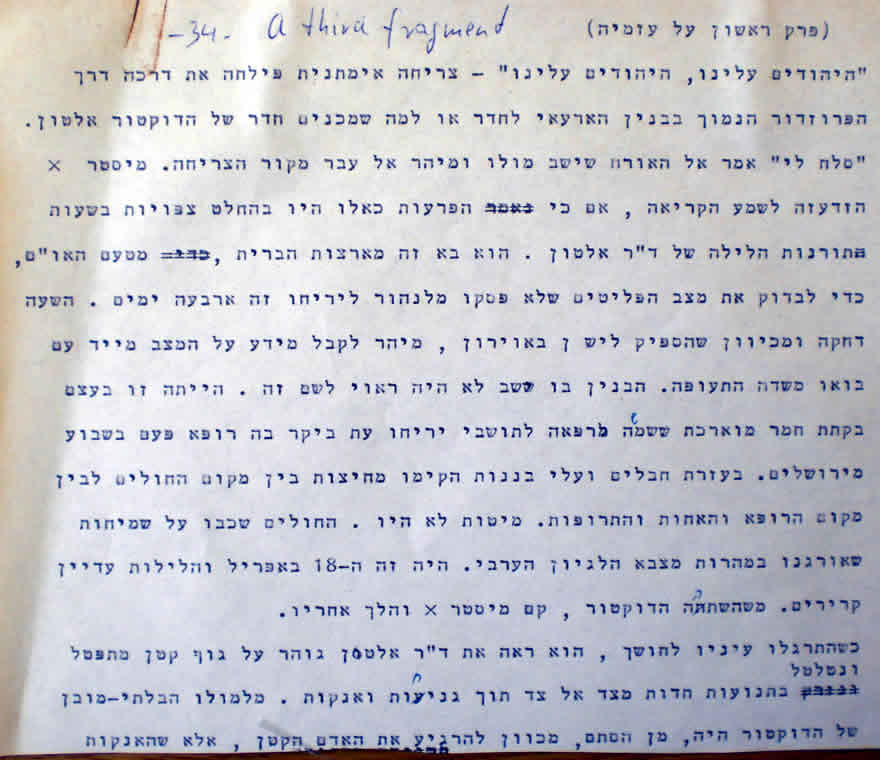 -34- A third fragment (פרק ראשון על עזמיה)
"היהודים עלינו, היהודים עלינו" - צריחה אימתנית פילחה את דרכה דרך
הפרוזדור הנמוך בבנין הארעאי לחדר או למה שמכנים חדר של הדוקטור אלטון.
"סלח לי" אמר אל האורח שישב מולו ומיהר אל עבר מקור הצריחה. מיסטר ×
הזדעזה לשמע הקריאה , אם כי נאמר הפרעות כאלו היו בהחלט צפויות בשעות
תורנות הלילה של ד"ר אלטון . הוא בא זה מארצות הברית , כדי מטעם האו"ם,
כדי לבדוק את מצב הפליטים שלא פסקו מלנהור ליריחו זה ארבעה ימים . השעה
דחקה ומכיוון שהספיק ליש ן באוירון , מיהר לקבל מידע על המצב מייד עם
בואו משדה התעופה. הבנין בו ישב לא היה ראוי לשם זה . הייתה זו בעצם
בקתת חמר מוארכת ששמשה מרפאה לתושבי יריחו עת ביקר בה רופא פעם בשבוע
מירושלים. בעזרת חבלים ועלי בננות הקימו מחיצות בין מקום החולים לבין
מקום הרופא והאחות והתרופות. מיטות לא היו . החולים שכבו על שמיחות
שאורגנו במהרות מצבא הלגיון הערבי. היה זה ה-18 באפריל והלילות עדיין
קרירים. משהשתהה הדוקטור , קם מיסטר × והלך אחריו.
כשהתרגלו עיניו לחושך , הוא ראה את ד"ר אלטון גוהר על גוף קטן מתפטל
ונטלטל
בתנועות חדות מצד אל צד תוך גניעות ואנקות . מלמולו הבלתי-מובן
של הדוקטור היה, מן הסתם, מכוון להרגיע את האדם הקטן , אלא שהאנקות